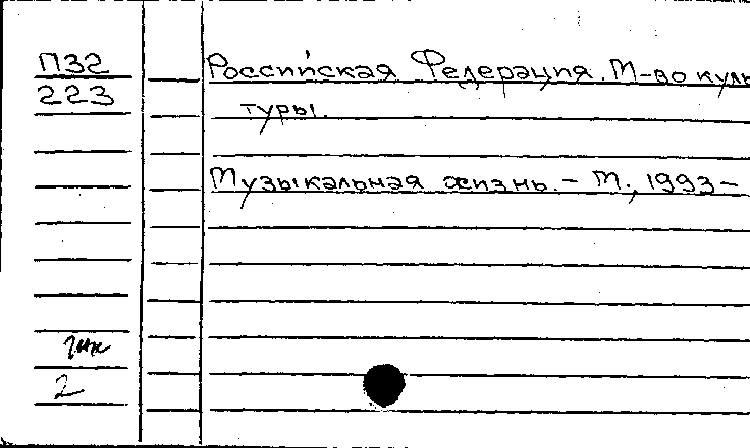 П32
223
Российская Федерация. М-во куль
туры.
Музыкальная жизнь. - М., 1993-
2